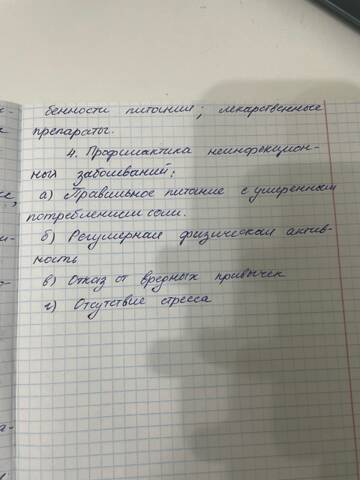 бенности питания; лекарственные
препараты.
4. Профилактика неинфекцион-
ных заболеваний:
а) Правильное питание с умеренным
потреблением соли.
б) Регулярная физическая актив-
ность
в) Отказ от вредных привычек
г) Отсутствие стресса